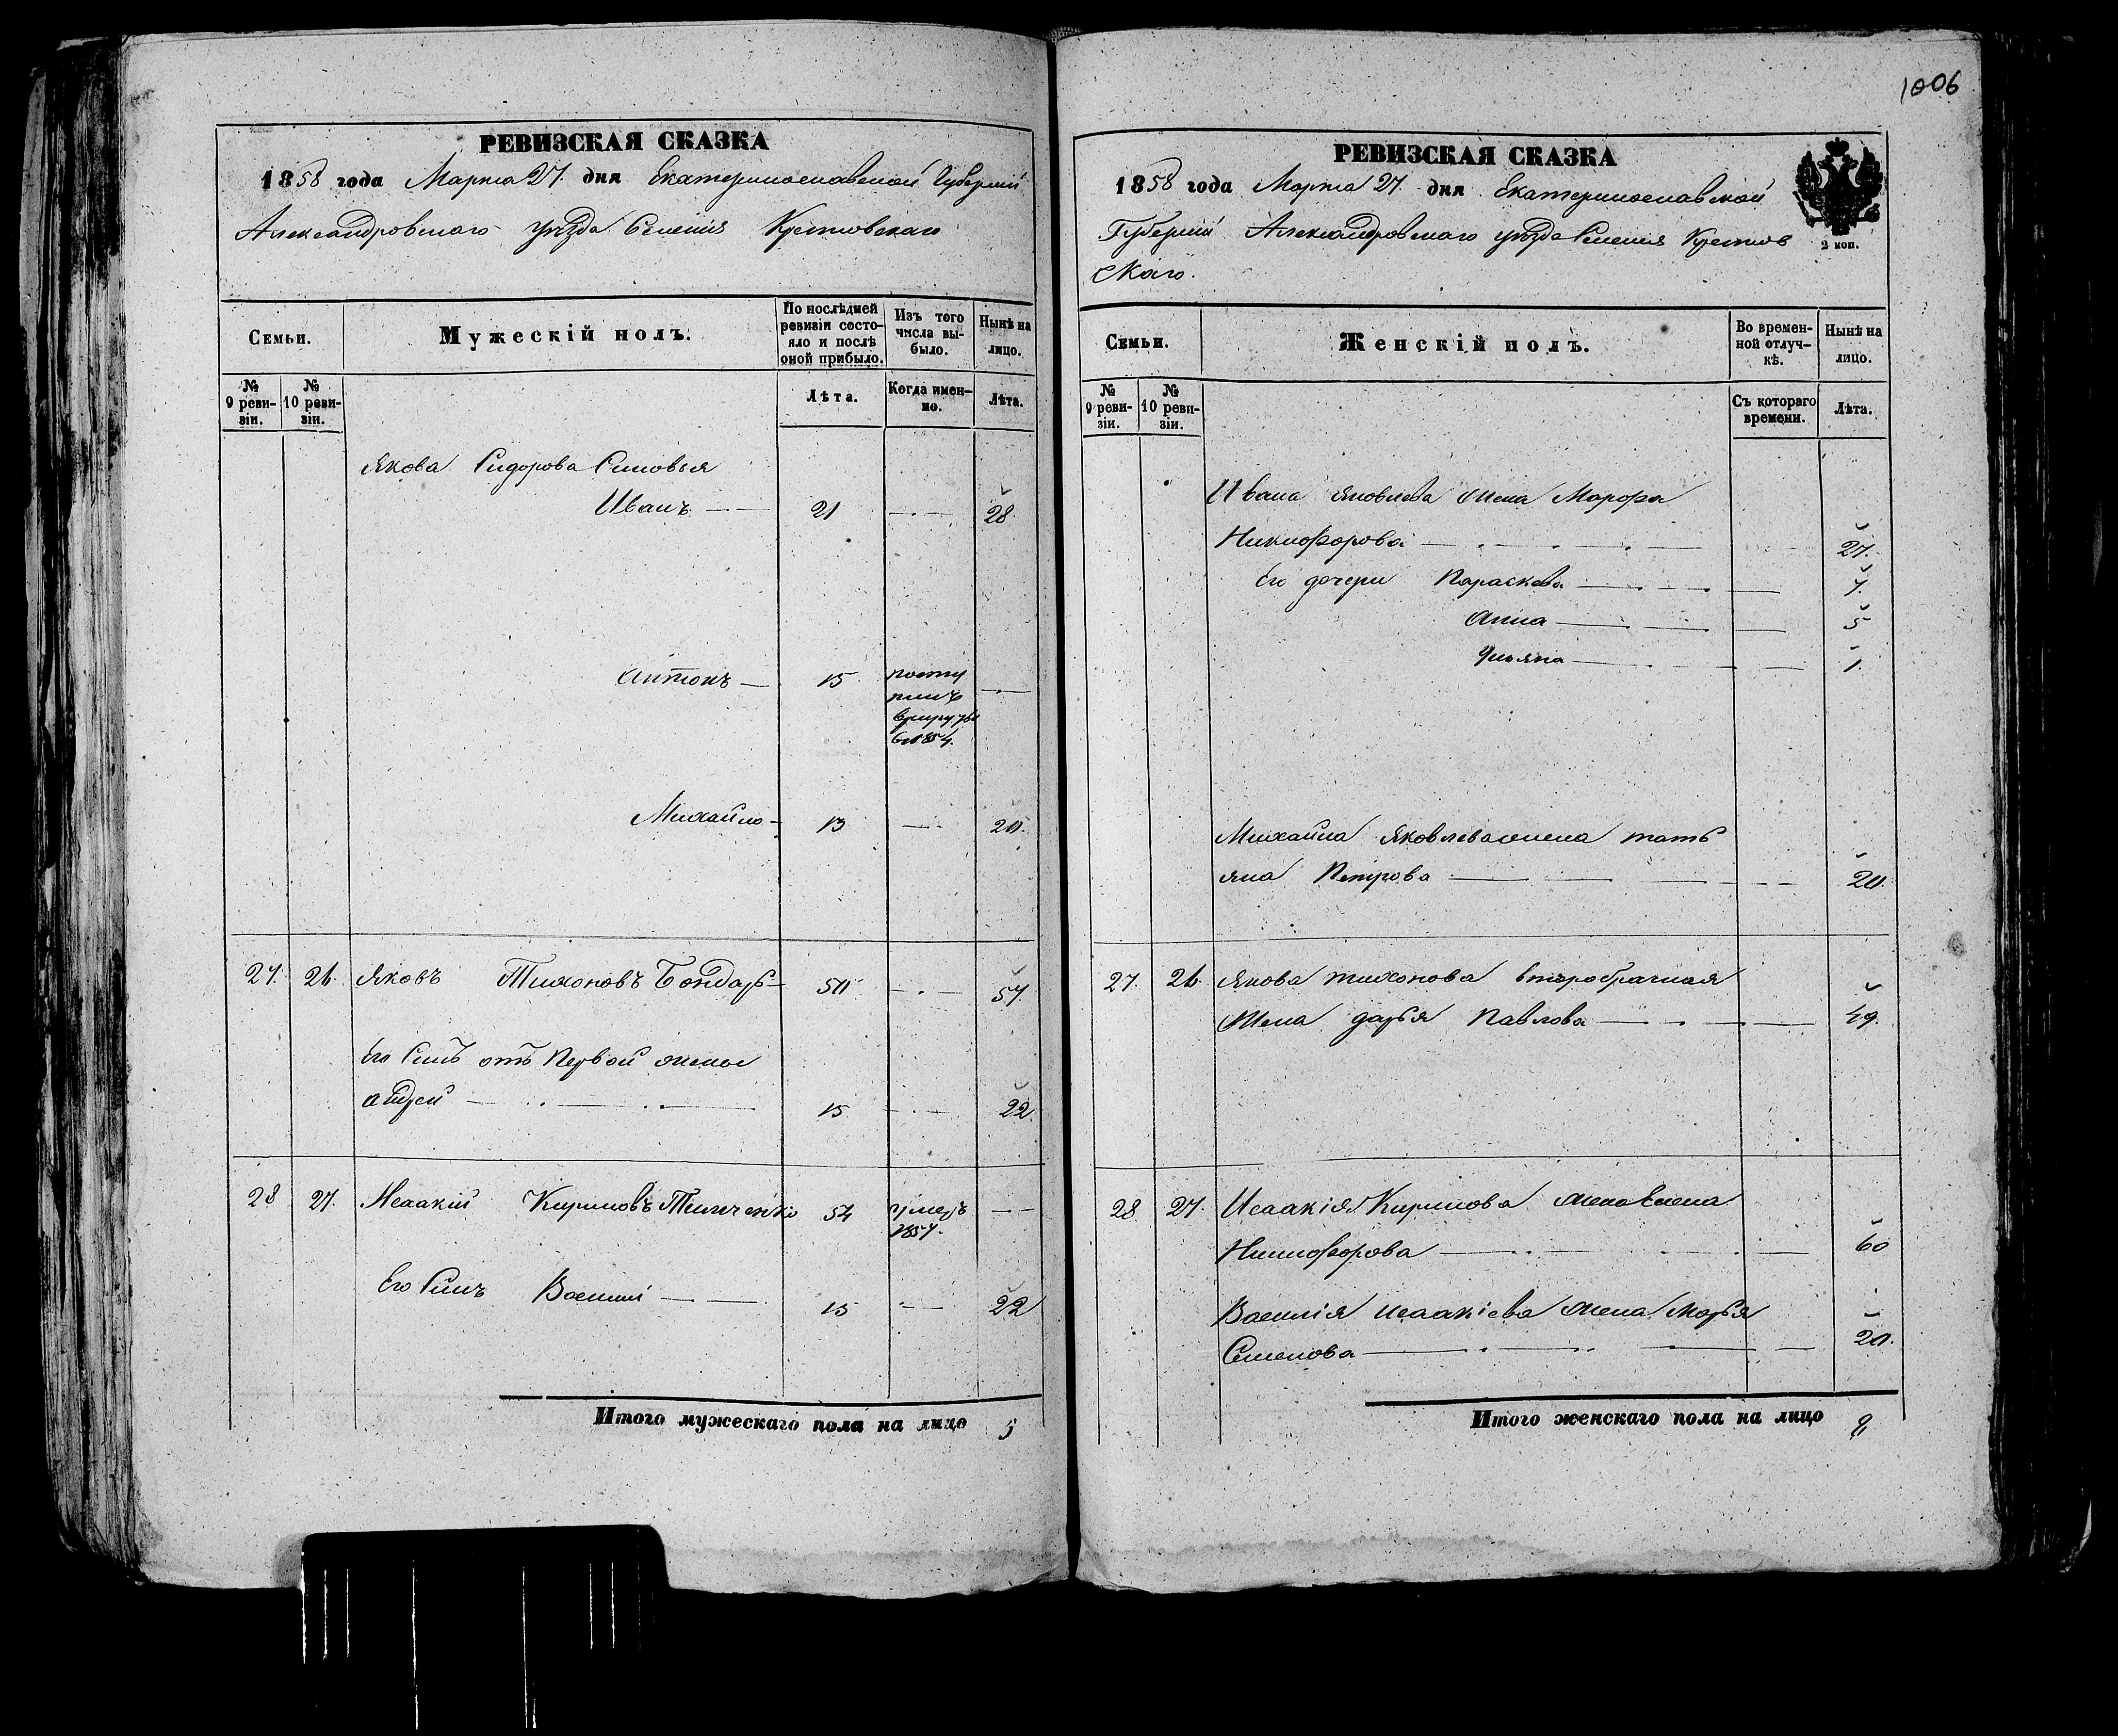 1006
РЕВИЗСКАЯ СКАЗКА
1858 года Марта 27. дня Екатеринославской Губерніи
Александровского уезда Селенія Крестовскаго
Семьи.
Мужескій полъ.
По послѣдней ревизіи состояло и послѣ оной прибыло.
Изъ того числа выбыло.
Нынѣ на лицо.
№ 9 ревизіи.
№ 10 ревизіи.
Лѣта.
Когда именно.
Лѣта.
Якова Сидорова Сыновья
Иванъ 21 28
Антонъ 15 посту
пилъ
в рекруты
в 1854.
Михайло 13 20.
27. 26. Яковъ Тихоновъ Бондарь 50 57
Его Сынъ отъ Первой жены
Андрей 15 22.
28 27. Исаакий Кириловъ 54 умеръ
1857.
Его Сынъ Василий 15 22
Итого мужескаго пола на лицо 5
РЕВИЗСКАЯ СКАЗКА
1858 года Марта 27. дня Екатеринославской
Губерніи Александровского уезда Селенія Крестов
скаго.
2 коп.
Семьи.
Женскій полъ.
Во временной отлучкѣ.
Нынѣ на лицо.
№ 9 ревизіи.
№ 10 ревизіи.
Съ котораго времени.
Лѣта.
Ивана Яковлева жена Марфа
Никифорова 27.
Его дочери Параскева 7.
Анна 5
Ульяна 1.
Михайла Яковлева жена Тать
яна Петрова 20.
27. 26. Якова Тихонова второбрачная
Жена Дарья Павлова 49.
28. 27. Исаакія Кирилова жена Елена
Никифорова 60
Василія Исаакіева жена Марья
Семенова 20.
Итого женскаго пола на лицо 8